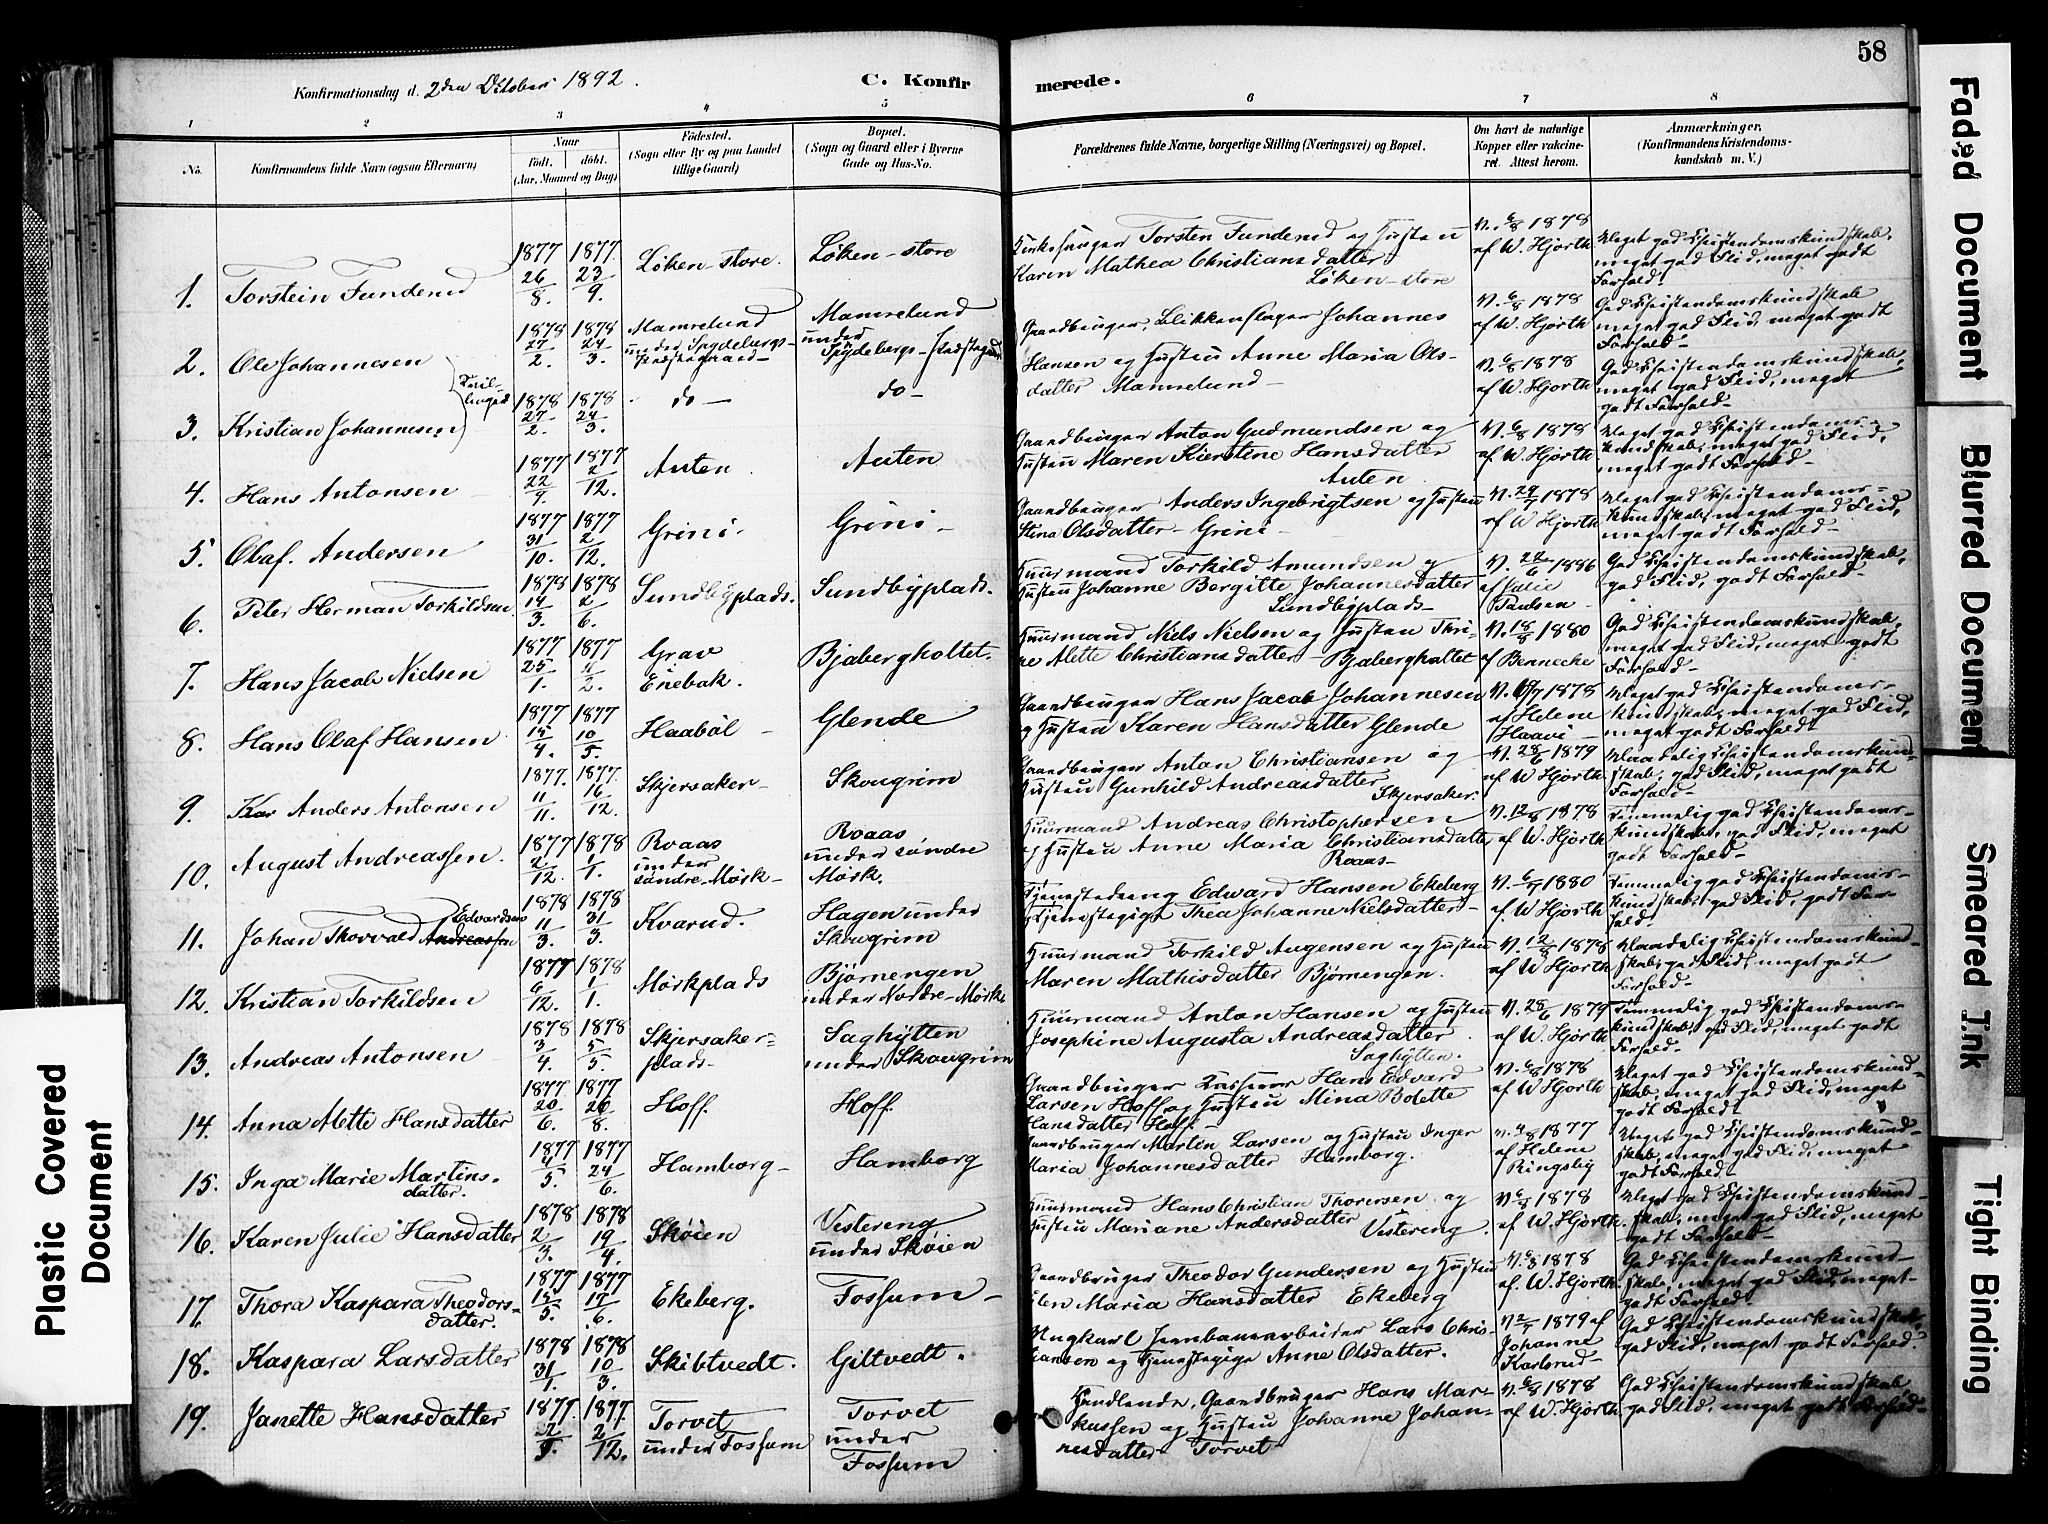 58
Konfirmationsdag d. 2den Oktober 1892.
C. Konfirmerede.
1 2 3 4 5 6 7 8
No.
Konfirmandens fulde Navn (ogsaa Efternavn)
Naar
født. døbt.
(Aar, Maaned og Dag)
Fødested.
(Sogn eller By og paa Landet
tillige Gaard)
Bopæl.
(Sogn og Gaard eller i Byerne
Gade og Hus-No.
Forældrenes fulde Navne, borgerlige Stilling (Næringsvei) og Bopæl.
Om havt de naturlige
Kopper eller vakcine-
ret. Attest herom.
Anmærkninger.
(Konfirmandens Kristendoms-
kundskab m. V.)
1. Torstein Fundenud 1877 26/8. 1877. 23/9. Løken-store. Løken-store
Kirkesanger Torsten Fundenud og Hustru
Karen Mathea Christiansdatter.
Løken-store
V. 6/8 1878
af W. Hjorth
Meget god Christendomskundskab,
meget god Flid, meget godt
Forhold.
2. Ole Johannesen 1878 27/2. 1878 24/3.
Mamrelund
under Spydebergs-
Præstegaard-
Mamrelund
under
Spydebergs-Præstegaard
Gaardbruger, Blikkenslager Johannes
Hansen og Hustru Anne Maria Ols-
datter Mamrelund-
V. 6/8 1878
af W. Hjorth
God Christendomskundskab
meget god Flid, meget godt
Forhold-
Tvil-
linger
3. Kristian Johannesen 1878 27/2. 1878 24/3. do- do-
V. 6/8 1878
af W. Hjorth
God Christendomskundskab,
meget god Flid, meget
godt Forhold-
4. Hans Antonsen 1877 22/9. 1877 2/12. Auten. Auten
Gaardbruger Anton Gudmundsen og
Hustru Maren Kierstine Hansdatter
Auten.
V. 6/8 1878
af W. Hjorth
Meget god Christendoms-
kundskab, meget god Flid,
meget godt Forhold-
5. Olaf. Andersen 1877 31/10. 1877 2/12. Grini. Grini-
Gaardbruger Anders Ingebrigtsen og Hustru
Stina Olsdatter- Grini-
V. 29/7 1878
af W Hjorth
Meget god Christendoms-
kundskab, meget god Flid,
meget godt Forhold-
6. Peter Herman Torkildsen 1878 14/3. 1878 2/6. Sundbyplads. Sundbyplads.
Huusmand Torkild Amundsen og
Hustru Johanne Bergitte Johannesdatter
Sundbyplads-
V. 22/6 1886
af Julie
Paulsen-
God Christendomskundskab,
god Flid, godt Forhold-
7. Hans Jacob Nielsen 1877 25/1. 1877
Grav
Enebak.
Bjabergholtet.
Huusmand Niels Nielsen og Hustru Thri-
ne Mette Christiansdatter- Bjabergholtet
V. 18/8 1880
af Bennecke
God Christendomskundskab,
meget god Flid, meget godt
Forhold-
8. Hans Olaf Hansen 1877 15/4. 1877 10/5. Haabøl- Glende
Gaardbruger Hans Jacob Johannesen
og Hustru Karen Hansdatter Glende
1878
af Helene
Haavi-
Meget god Christendoms-
kundskab, meget god Flid,
meget godt Forhold.
9. Anders Antonsen 1877. 11/11. 1877. 16/12. Skjersaker- Skougrim
Gaardbruger Anton Christiansen og
Hustru Gunhild Andreasdatter
Skjersaker.
V. 28/6 1879
af W Hjorth
Maadelig Christendomskund-
skab, god Flid, meget godt
Forhold-
10. August Andreassen. 1877 2/12. 1878 1/1.
Roaas
under
søndre-Mørk-
Roaas
under søndre
Mørk.
Huusmand Andreas Christophersen
og Hustru Anne Maria Christiansdatter
Roaas-
1878
af W. Hjorth
Temmelig god Christendoms-
kundskab, god Flid, meget
godt Forhold-
11. Johan Thorvald Andreassen Edvardsen 1878 11/3. 1878 31/3. Kvarud.
Hagen under
Skougrim
Tjenestedreng Edward Hansen Ekeberg
Tjenestepige Thea Johanne Nielsdatter-
1880
af W. Hjorth
Temmelig god Christendoms-
kundskab, god Flid, godt For-
hold.
12. Kristian Torkildsen 1877 6/12. 1878 1/1. Mørkplads
Bjørnengen
under Nordre-Mørk
Huusmand Torkild Augensen og Hustru
Maren Mathisdatter Bjørnengen.
V. 12/8 1878
af W Hjorth
Maadelig Christendomskund-
skab, god Flid, meget godt
Forhold-
13. Andreas Antonsen- 1878 3/4. 1878 5/5.
Skjersaker-
plads-
Saghytten
under Skougrim
Huusmand Anton Hansen og Hustru
Josephine Augusta Andreasdatter
Saghytten.
V. 28/6 1879
af W. Hjorth.
Temmelig god Christendoms-
kundskab, god Flid, meget godt
Forhold-
14. Anna Mette Hansdatter 1877 20/6. 1877 26/8. Hoff. Hoff.
Gaardbruger Kasserer Hans Edvard
Larsen Hoff og Hustru Mina Bolette
Hansdatter Hoff-
V. 6/8 1878
af W Hjorth-
Meget god Christendomskund-
skab, meget god Flid, meget
godt Forhold
15. Inga Marie Martins-
datter. 1877 4/5. 1877 24/6. Hamborg- Hamborg
Gaardbruger Martin Larsen og Hustru Inger
Maria Johannesdatter Hamborg.
1877
af Helene
Ringsby
Meget god Christendomskund-
skab, meget god Flid, meget
godt Forhold-
16. Karen Julie Hansdatter 1878 2/3. 1878 19/4. Skøien
Vestereng
under Skøien
Huusmand Hans Christian Thoresen og
Hustru Mariane Andersdatter Vestereng.
V. 6/8 1878
af W. Hjorth.
Meget god Christendomskund-
skab, meget god Flid, meget
godt Forhold-
17. Thora Kaspara Theodors-
datter. 1877 15/5. 1877 17/6. Ekeberg. Fossum-
Gaardbruger Theodor Gundersen og Hustru
Elen Maria Hansdatter Ekeberg
V. 6/8 1878
af. W. Hjorth.
God Christendomskund-
skab, meget god Flid, meget
godt Forhold-
18. Kaspara Larsdatter 1878 31/1. 1878 10/3. Skibtvedt. Giltvedt.
Ungkarl Jernbanearbeider Lars Chris-
tiansen og Tjenestepige Anne Olsdatter.
1879 af
Johanne
Karlsrud-
God Christendomskundskab,
god Flid, meget godt Forhold.
19. Janette Hansdatter 1877 1877. 2/12.
Torvet
under Fossum
Torvet
under
Fossum
Handlende, Gaardbruger Hans Mar-
kussen og Hustru Johanne Johan-
nesdatter Torvet
V. 6/8 1878
af W. Hjorth.
God Christendomskundskab
god Flid, meget godt Forhold-
Plastic Covered
Document
Faded Document
Blurred Document
Smeared Ink
Tight Binding